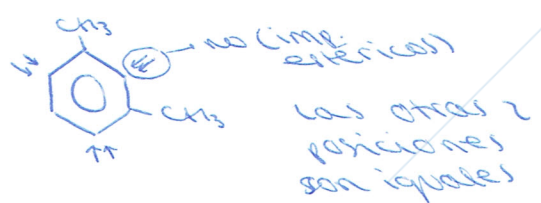 CH3
↓↓
↓↓ → NO (imp. estéricos)
CH3
↑↑
Las otras 2
posiciones
son iguales